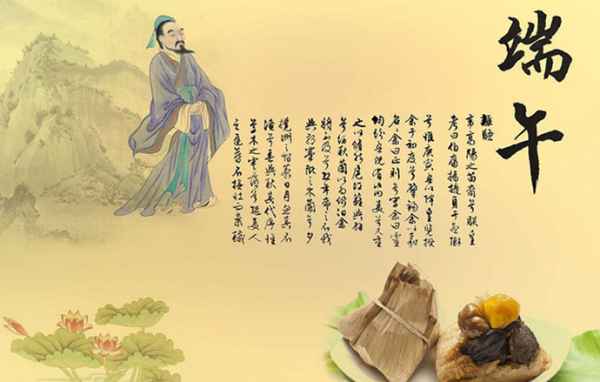 端午
離騷
帝高陽之苗裔兮朕皇
考曰伯庸攝提貞于孟陬
兮惟庚寅吾以降皇覽揆
余于初度兮肇錫余以嘉
名名余曰正則兮字余曰靈
均紛吾既有此內美兮又重
之以脩能扈江離與辟
兮紉秋蘭以為佩汩余
將不及兮恐年歲之不我
與朝搴阰之木蘭兮夕
攬洲之宿莽日月忽其不
淹兮春與秋其代序惟
草木之零落兮恐美人
之遲暮不撫壯而棄穢